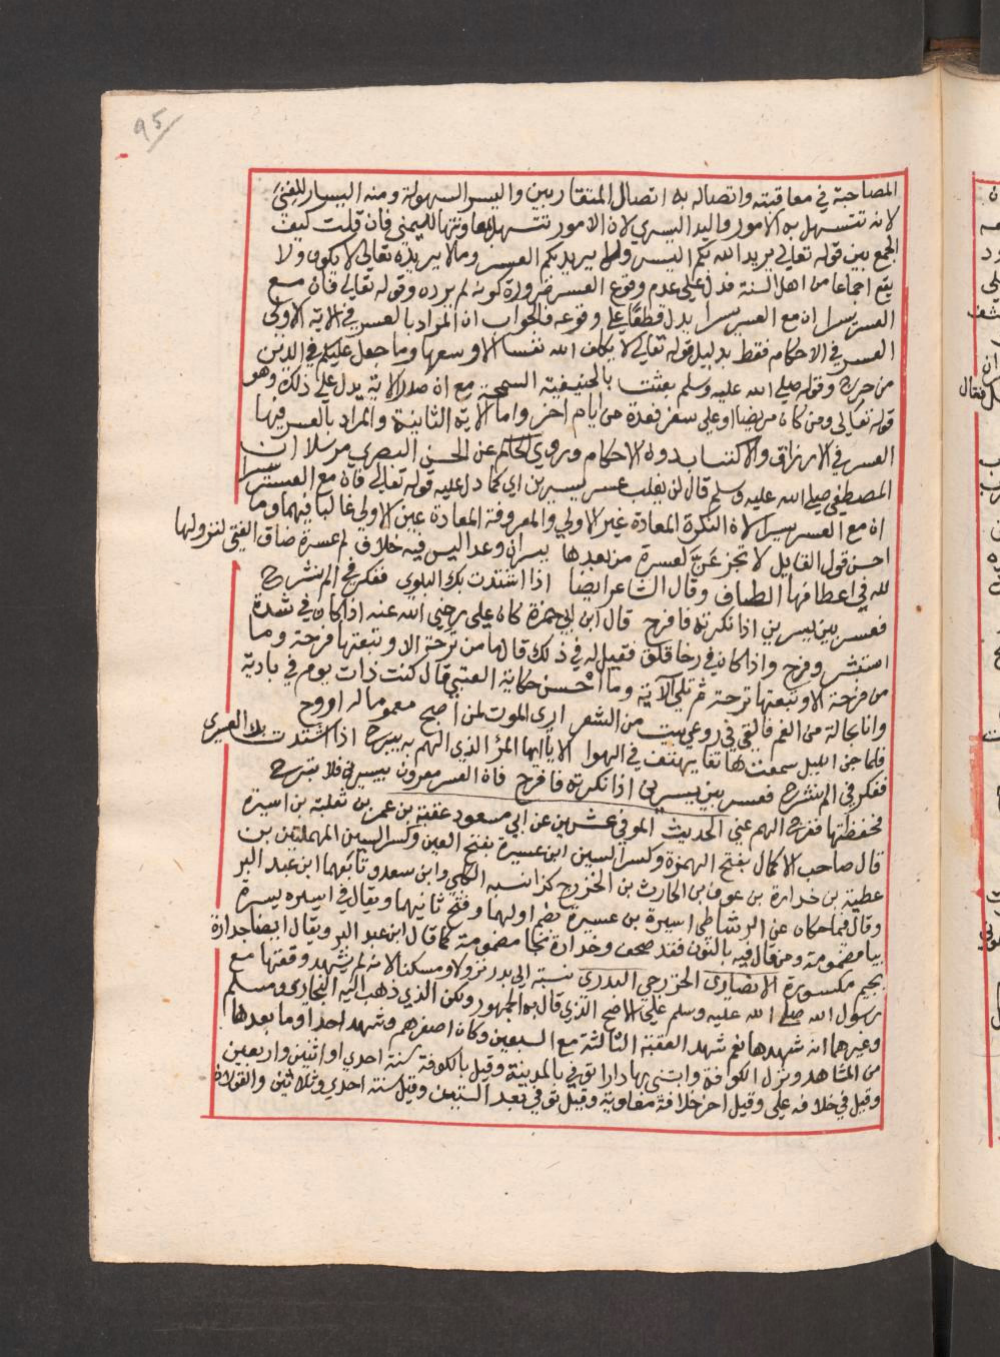 95
المصاحبة في معاقبته واتصاله به اتصال المتقاربين واليسر السهولة ومنه اليسار للغنى
لانه تتسهل به الامور واليد اليسري لان الامور تتسهل بمعاونتها لليمني فان قلت كيف
الجمع بين قوله تعالي يريد الله بكم اليسر ولا يريد بكم العسر وما لا يريده تعالي لا يكون ولا
يقع اجماعا من اهل السنة فدل علي عدم وقوع العسر ضرورة كونه لم يرده وقوله تعالي فان مع
العسر يسرا ان مع العسر يسرا يدل قطعا علي وقوعه فالجواب ان المراد بالعسر في الاية الاولي
العسر في الاحكام فقط بدليل قوله تعالي لا يكلف الله نفسا الا وسعها وما جعل عليكم في الدين
من حرج وقوله صلي الله عليه وسلم بعثت بالحنيفية السمحة مع ان صدر الاية يدل علي ذلك وهو
قوله تعالي ومن كان مريضا او علي سفر فعدة من ايام اخر واما الاية الثانية والمراد بالعسر فيها
العسر في الارزاق والاكتساب دون الاحكام وروي الحاكم عن الحسن البصري مرسلا ان
المصطفي صلي الله عليه وسلم قال لن يغلب عسر يسرين اي كما دل عليه قوله تعالي فان مع العسر يسرا
ان مع العسر يسرا لان النكرة المعادة غير الاولي والمعروفة المعادة عين الاولي غالبا فيهما وما
احسن قول القايل لا تجزعن لعسرة من بعدها يسران وعدا ليس فيه خلاف لم عسرة ضاق الفتي لنزولها
لله في اعطافها الطاف وقال الشاعر ايضا اذا اشتدت بك البلوي ففكر في الم نشرح
فعسر بين يسرين اذا ذكرته فافرح قال ابن ابي جمزة كان علي رضي الله عنه اذا كان في شدة
استبشر وفرح واذا كان في رخا قلق فقيل له في ذلك قال ما من ترحة الا وتبعتها فرحة وما
من فرحة الا وتبعتها ترحة ثم تلي الآية وما احسن حكاية العتبي قال كنت ذات يوم في بادية
وانا بحالة من الغم فالقي في روعي بيت من الشعر اري الموت لمن اصبح مغموما له اروح
فلما جن الليل سمعت هاتفا يهتف في الهوا الا يا ايها المرؤ الذي الهم به يبرح اذا اشتدت بك العسري
ففكر في الم نشرح فعسر بين يسرين اذا ذكرته فافرح فان العسر مقرون بيسرين فلا تبرح
فحفظتها ففرج الهم عني الحديث الموفي عشرين عن ابي مسعود عقبة بن عمر بن ثعلبة بن اسيرة
قال صاحب الاكمال بفتح الهمزة وكسر السين ابن عسيرة بفتح العين وكسر السين المهملتين بن
عطية بن خدارة بن عوف بن الحارث بن الخزرج كذا نسبه الكلبي وابن سعد وتابعهما ابن عبد البر
وقال فيما حكاه عن الرشاطي اسيرة بن عسيرة بضم اولهما وفتح ثانيهما ويقال في اسيره يسرة
بيا مضمومة ومن قال فيه بالنون فقد صحف وخدارة بخا مضمومة كما قال ابن عبد البر ويقال ايضا جدارة
بجيم مكسورة الانصاري الخزرجي البدري نسبة الي بدر نزولا ومسكنا لانه لم يشهد وقعتها مع
رسول الله صلي الله عليه وسلم علي الاصح الذي قال به الجمهور ولكن الذي ذهب اليه البخاري ومسلم
وغيرهما انه شهدها نعم شهد العقبة الثالثة مع السبعين وكان اصغرهم وشهد احدا وما بعدها
من المشاهد ونزل الكوفة وابتني بها دارا توفي بالمدينة وقيل بالكوفة سنة احدي او اثنين واربعين
وقيل في خلافه علي وقيل اخر خلافة معاوية وقيل توفي بعد الستين وقيل سنة احدي وثلاثين والقولان